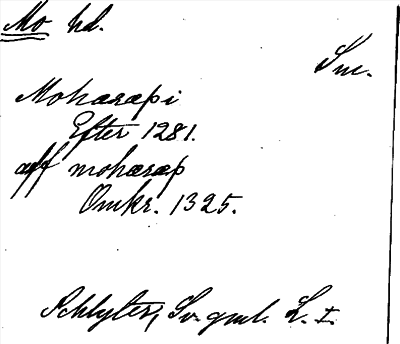 Mo hd.
Sm.
Mohæræpi
Efter 1281.
aff mohæræp
Omkr. 1325.
Schlyter, Sv. gml. L. I.